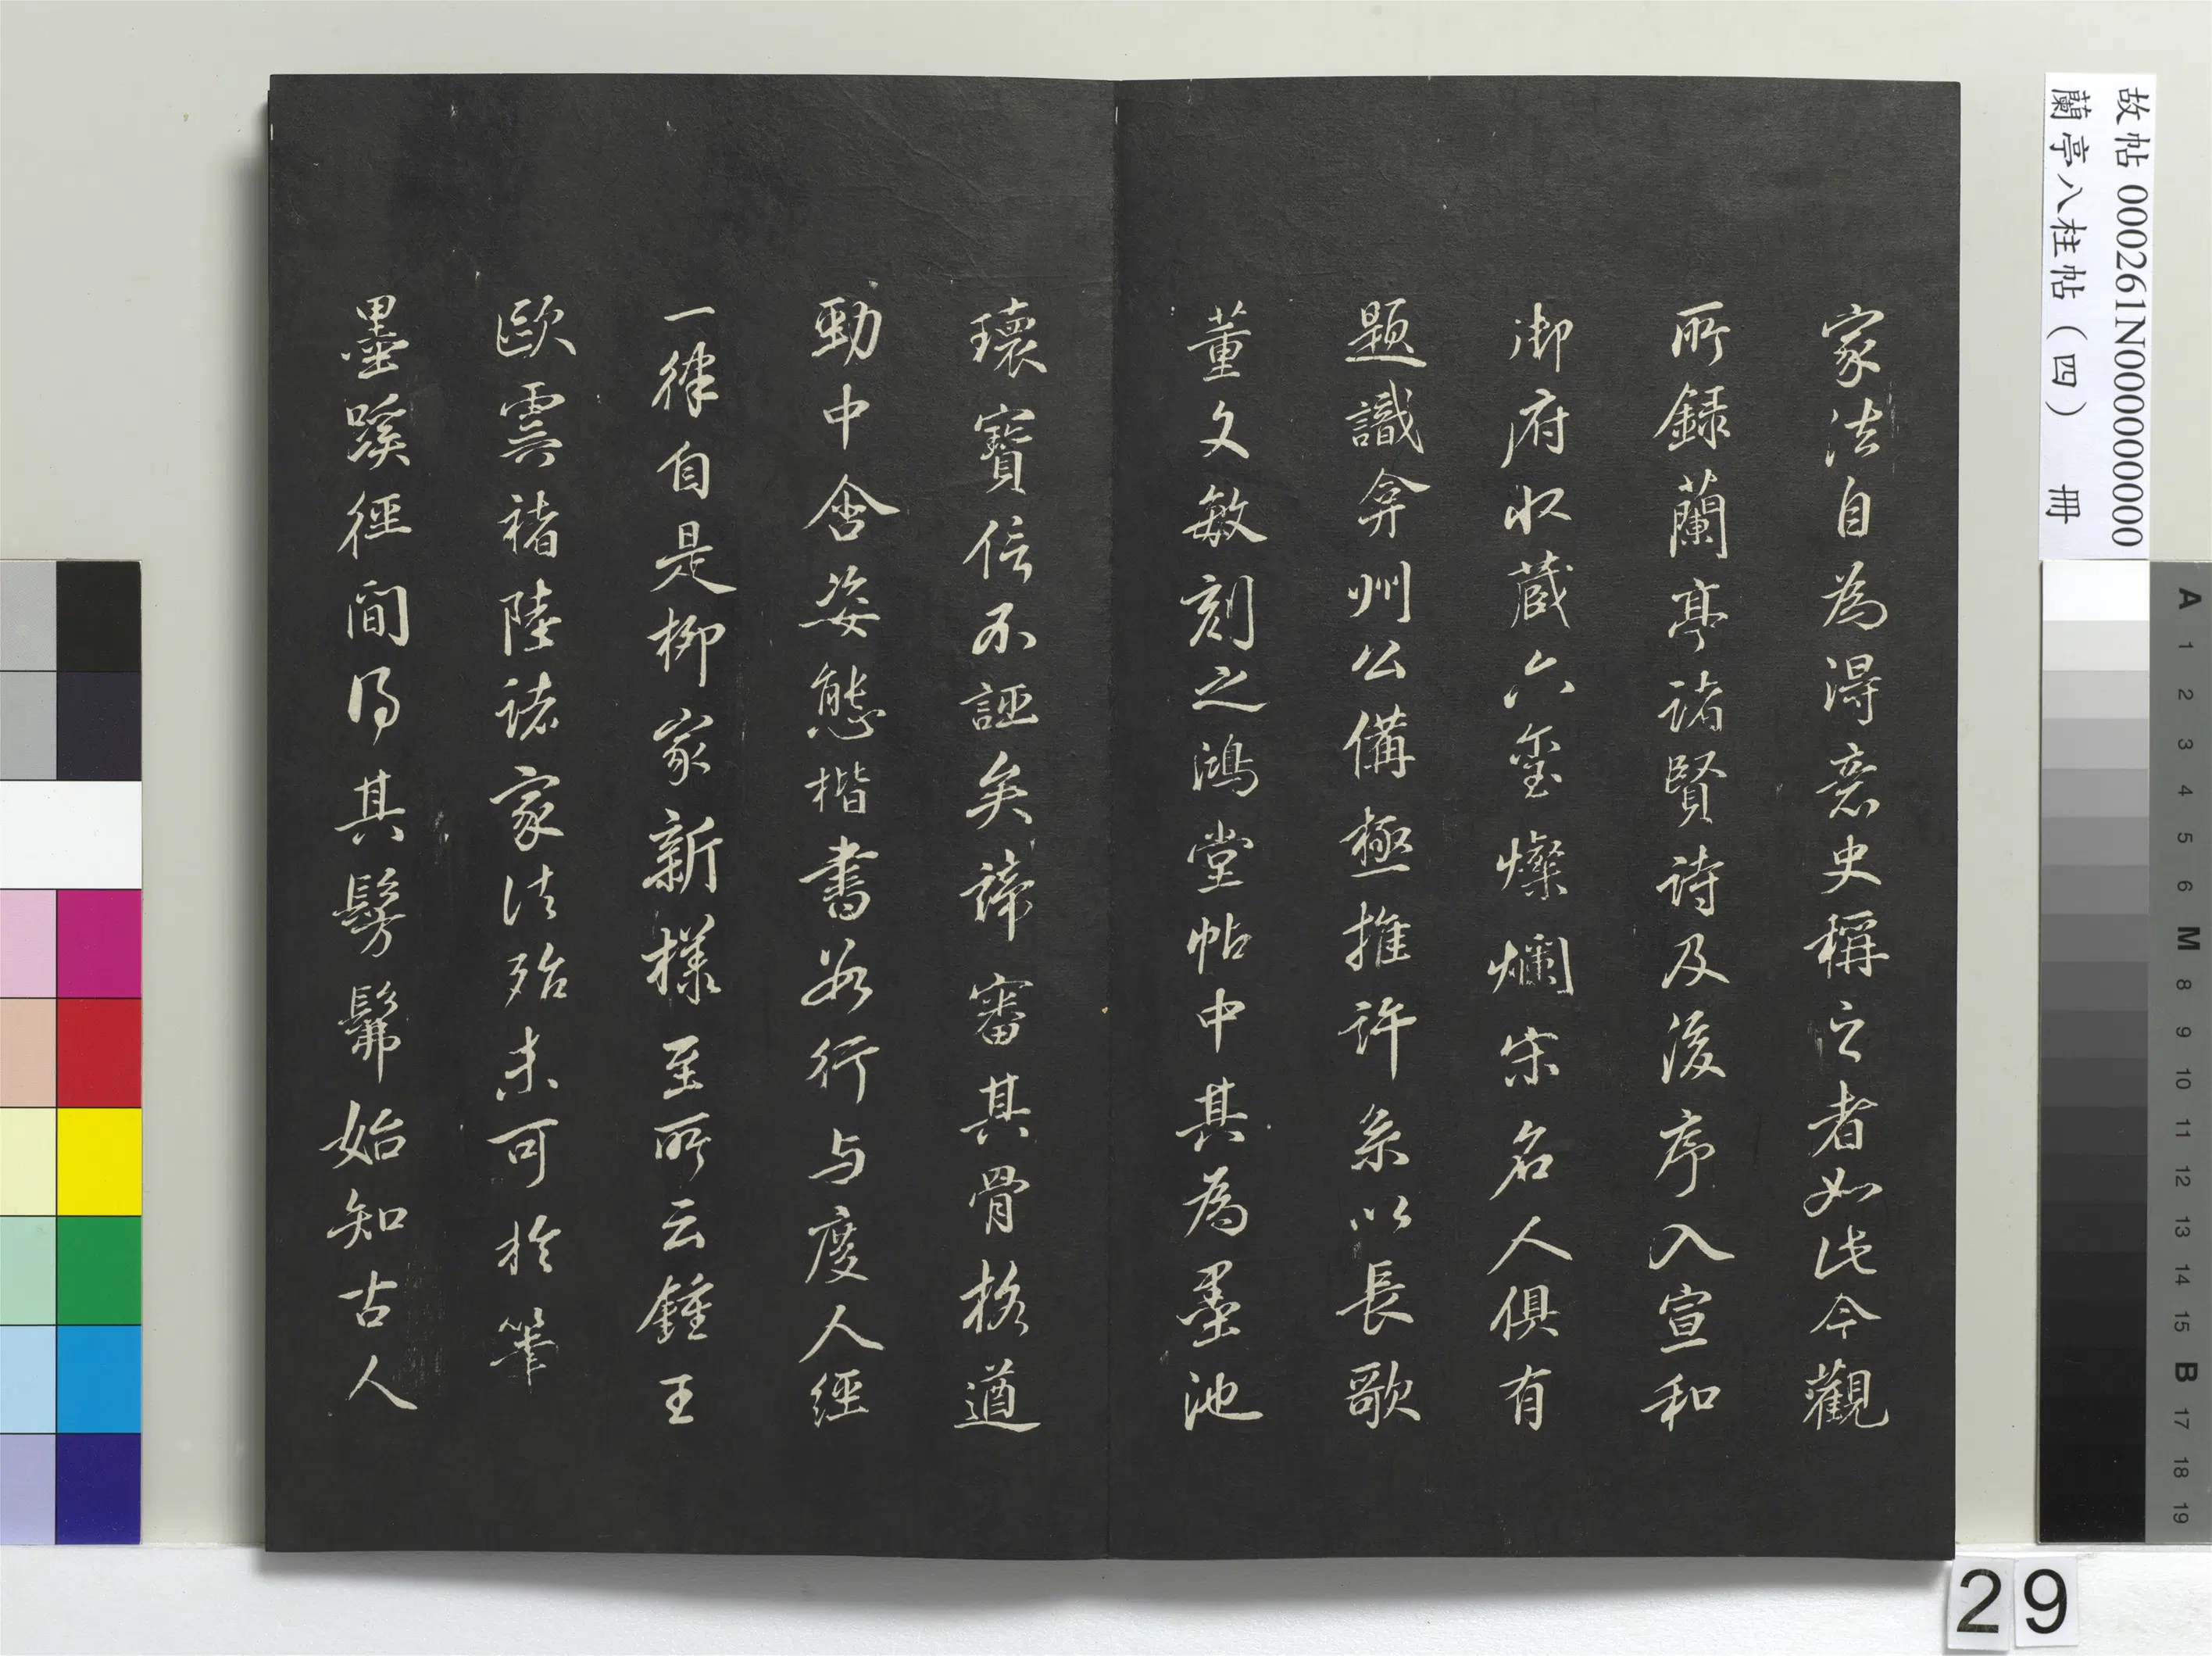 家法自為得意史稱之者如此今觀
所錄蘭亭諸賢詩及後序入宣和
御府收藏六璽燦爛宋名人俱有
題識弇州公備極推許系以長歌
董文敏刻之鴻堂帖中其為墨池
瓌寶信不誣矣諦審其骨格遒
勁中含姿態楷書若行与度人經
一律自是柳家新樣至所云鍾王
歐虞褚陸諸家法殆未可於筆
墨蹊徑間得其髣髴始知古人
故帖 000261N000000000
蘭亭八柱帖（四） 冊
A 1 2 3 4 5 6 M 8 9 10 11 12 13 14 15 B 17 18 19
29